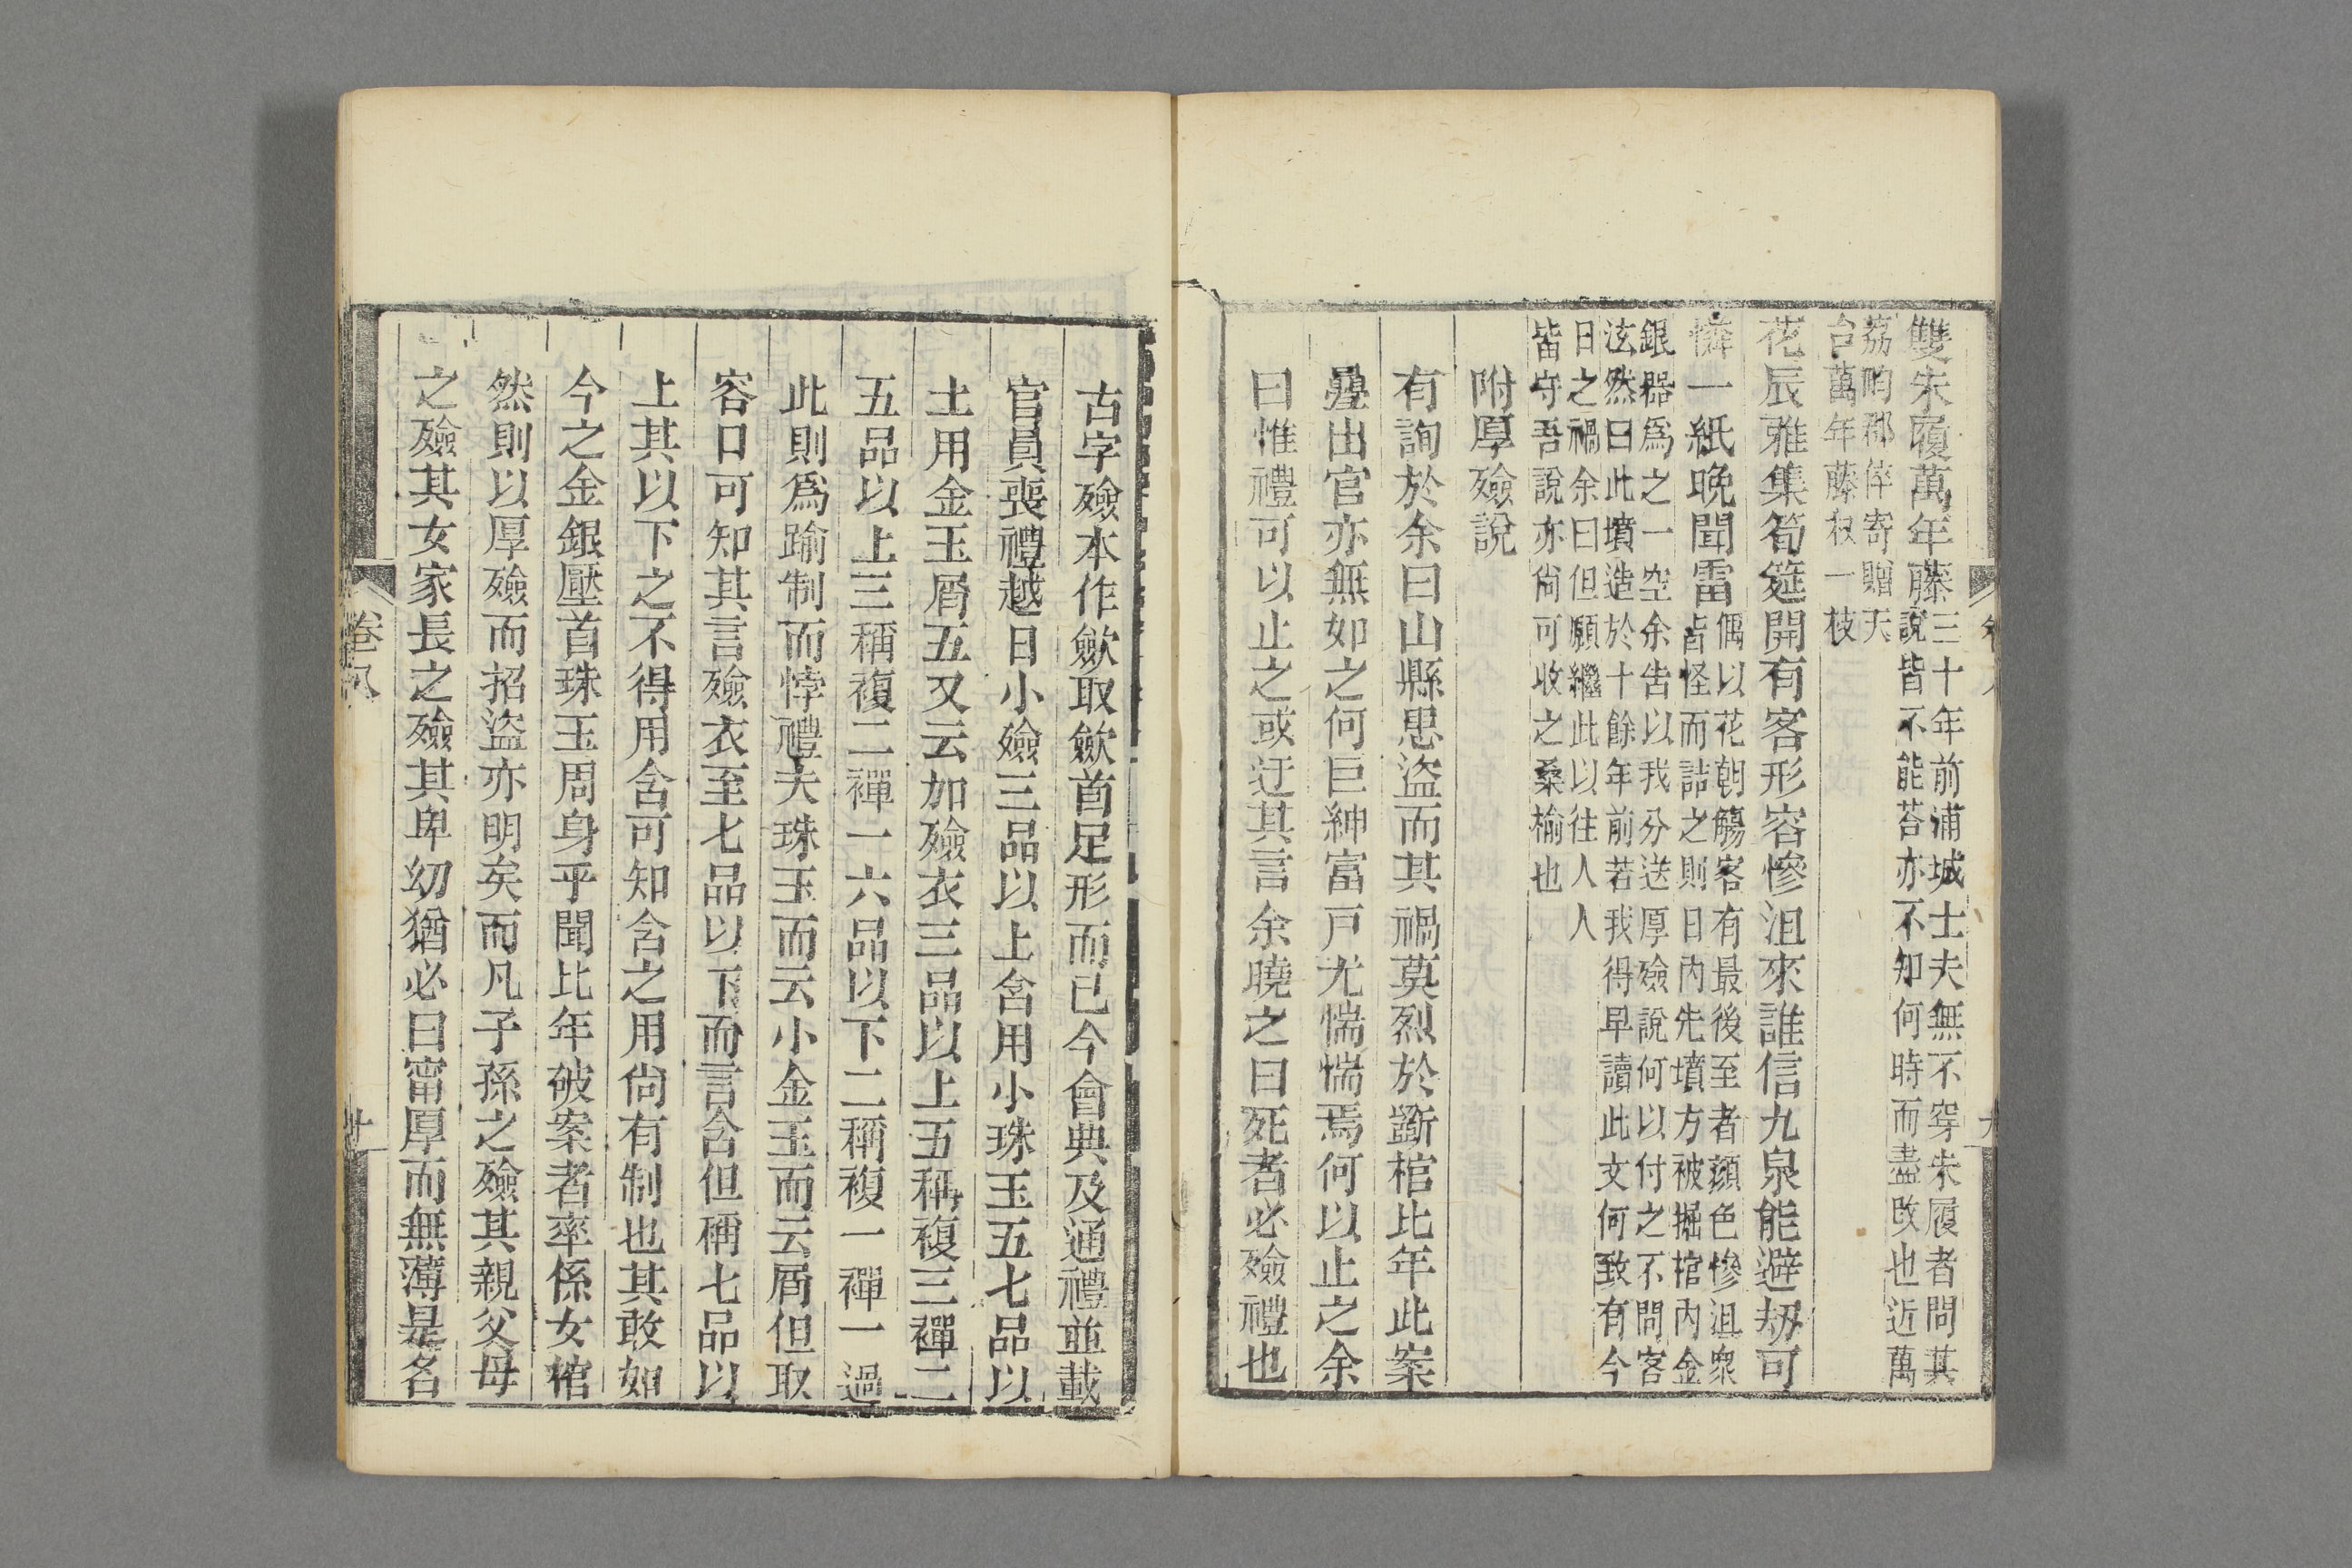 雙朱履萬年藤三十年前浦城士夫無不穿朱履者問其
說皆不能荅亦不知何時而盡改也近萬
荔昀郡倅寄贈天
台萬年藤杖一枝
花辰雅集筍筵開有客形容慘沮來誰信九泉能避刼可
憐一紙晚聞雷偶以花朝觴客有最後至者顏色慘沮衆
皆怪而詰之則曰內先墳方被掘棺內金
銀器爲之一空余告以我分送厚殮說何以付之不問客
泫然曰此墳造於十餘年前若我得早讀此文何致有今
日之禍余曰但願繼此以往人人
皆守吾說亦尙可收之桑榆也
附厚殮說
有詢於余曰山縣患盜而其禍莫烈於斵棺比年此案
疊出官亦無如之何巨紳富戸尤惴惴焉何以止之余
曰惟禮可以止之或迂其言余曉之曰死者必殮禮也
古字殮本作歛取歛首足形而已今會典及通禮並載
官員喪禮越日小殮三品以上含用小珠玉五七品以
上用金玉屑五又云加殮衣三品以上五稱複三襌二
五品以上三稱複二襌一六品以下二稱複一襌一過
此則爲踰制而悖禮夫珠玉而云小金玉而云屑但取
容口可知其言殮衣至七品以下而言含但稱七品以
上其以下之不得用含可知含之用尙有制也其敢如
今之金銀壓首珠玉周身乎聞比年破案者率係女棺
然則以厚殮而招盜亦明矣而凡子孫之殮其親父母
之殮其女家長之殮其卑幼猶必曰甯厚而無薄是名
卷八
廿